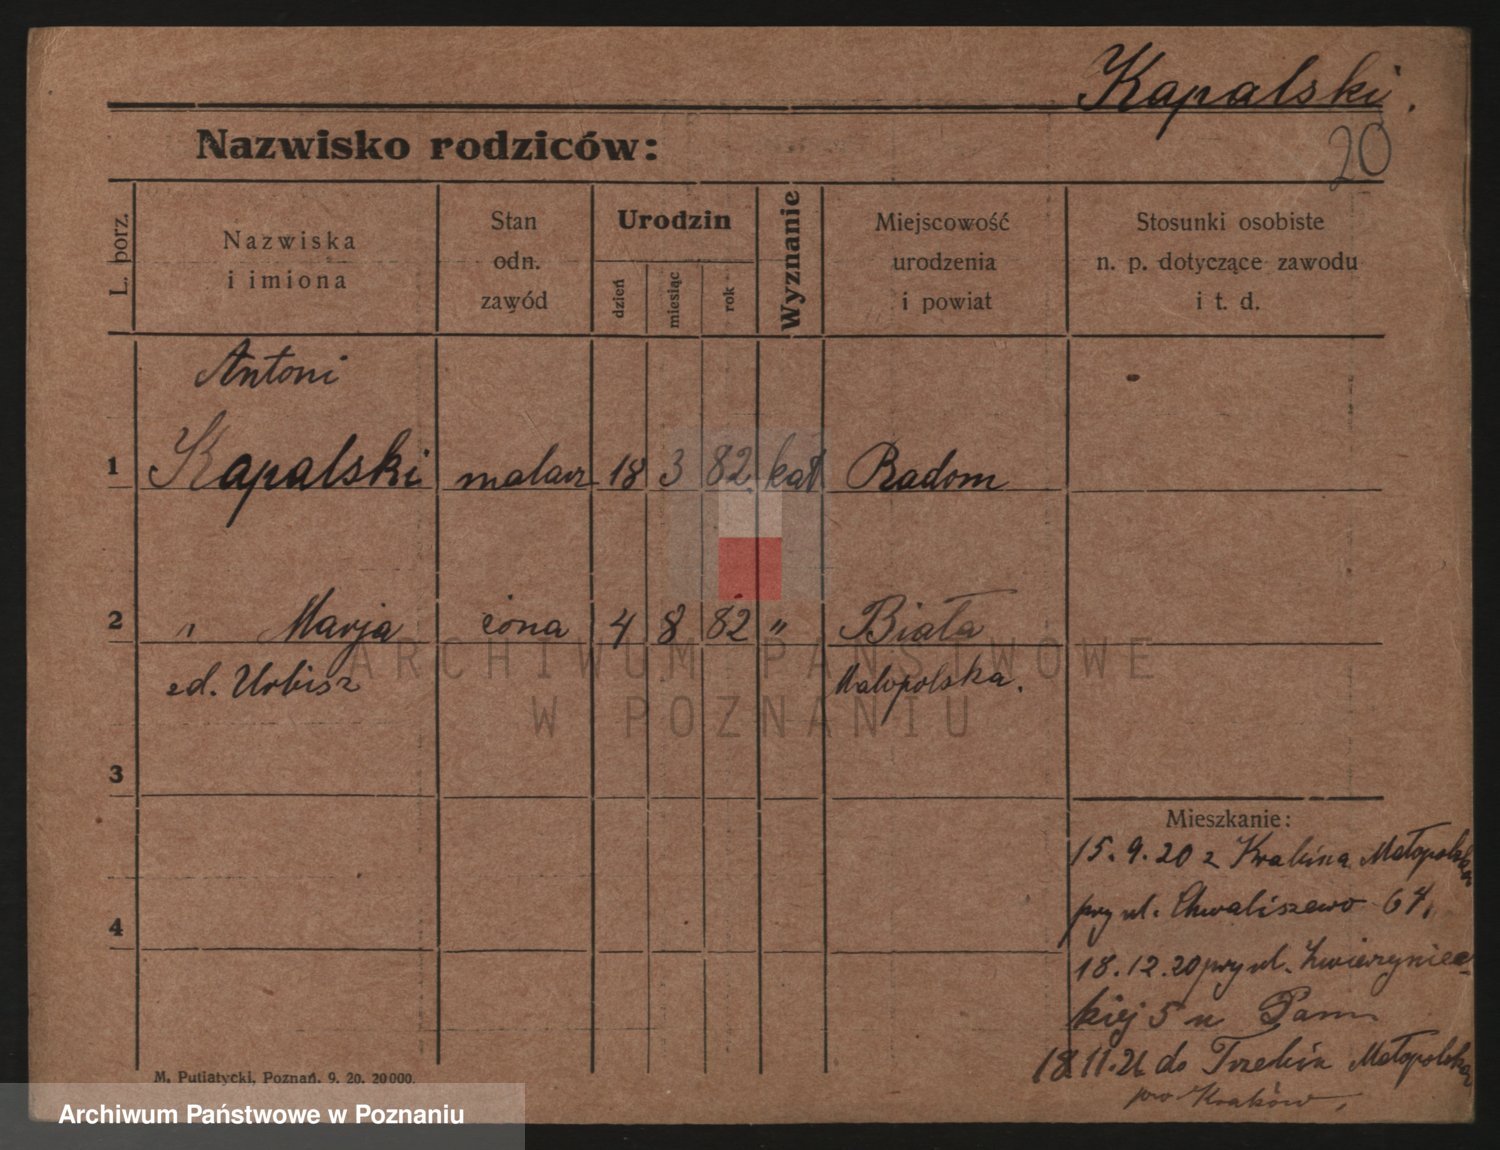 Kapalski.
20
Nazwisko rodziców:
L. porz.
Nazwiska
i imiona
Stan
odn.
zawód
Urodzin
dzień
miesiąc
rok
Wyznanie
Miejscowość
urodzenia
i powiat
Stosunki osobiste
n. p. dotyczące zawodu
i t. d.
Antoni
1 Kapalski malarz 18 3 82 kat Radom
2 " Marja żona 4 8 82 " Biała
zd. Urbisz Małopolska.
ARCHIWUM PAŃSTWOWE
W POZNANIU
3
4
Mieszkanie:
15.9.20 z Małopolska
przy ul. Chwaliszewo 64,
18.12.20 przy ul. Zwierzyniec-
kiej 5 u
18.11.21 do Małopolska
pow Kraków,
M. Putiatycki, Poznań. 9. 20. 20000.
Archiwum Państwowe w Poznaniu